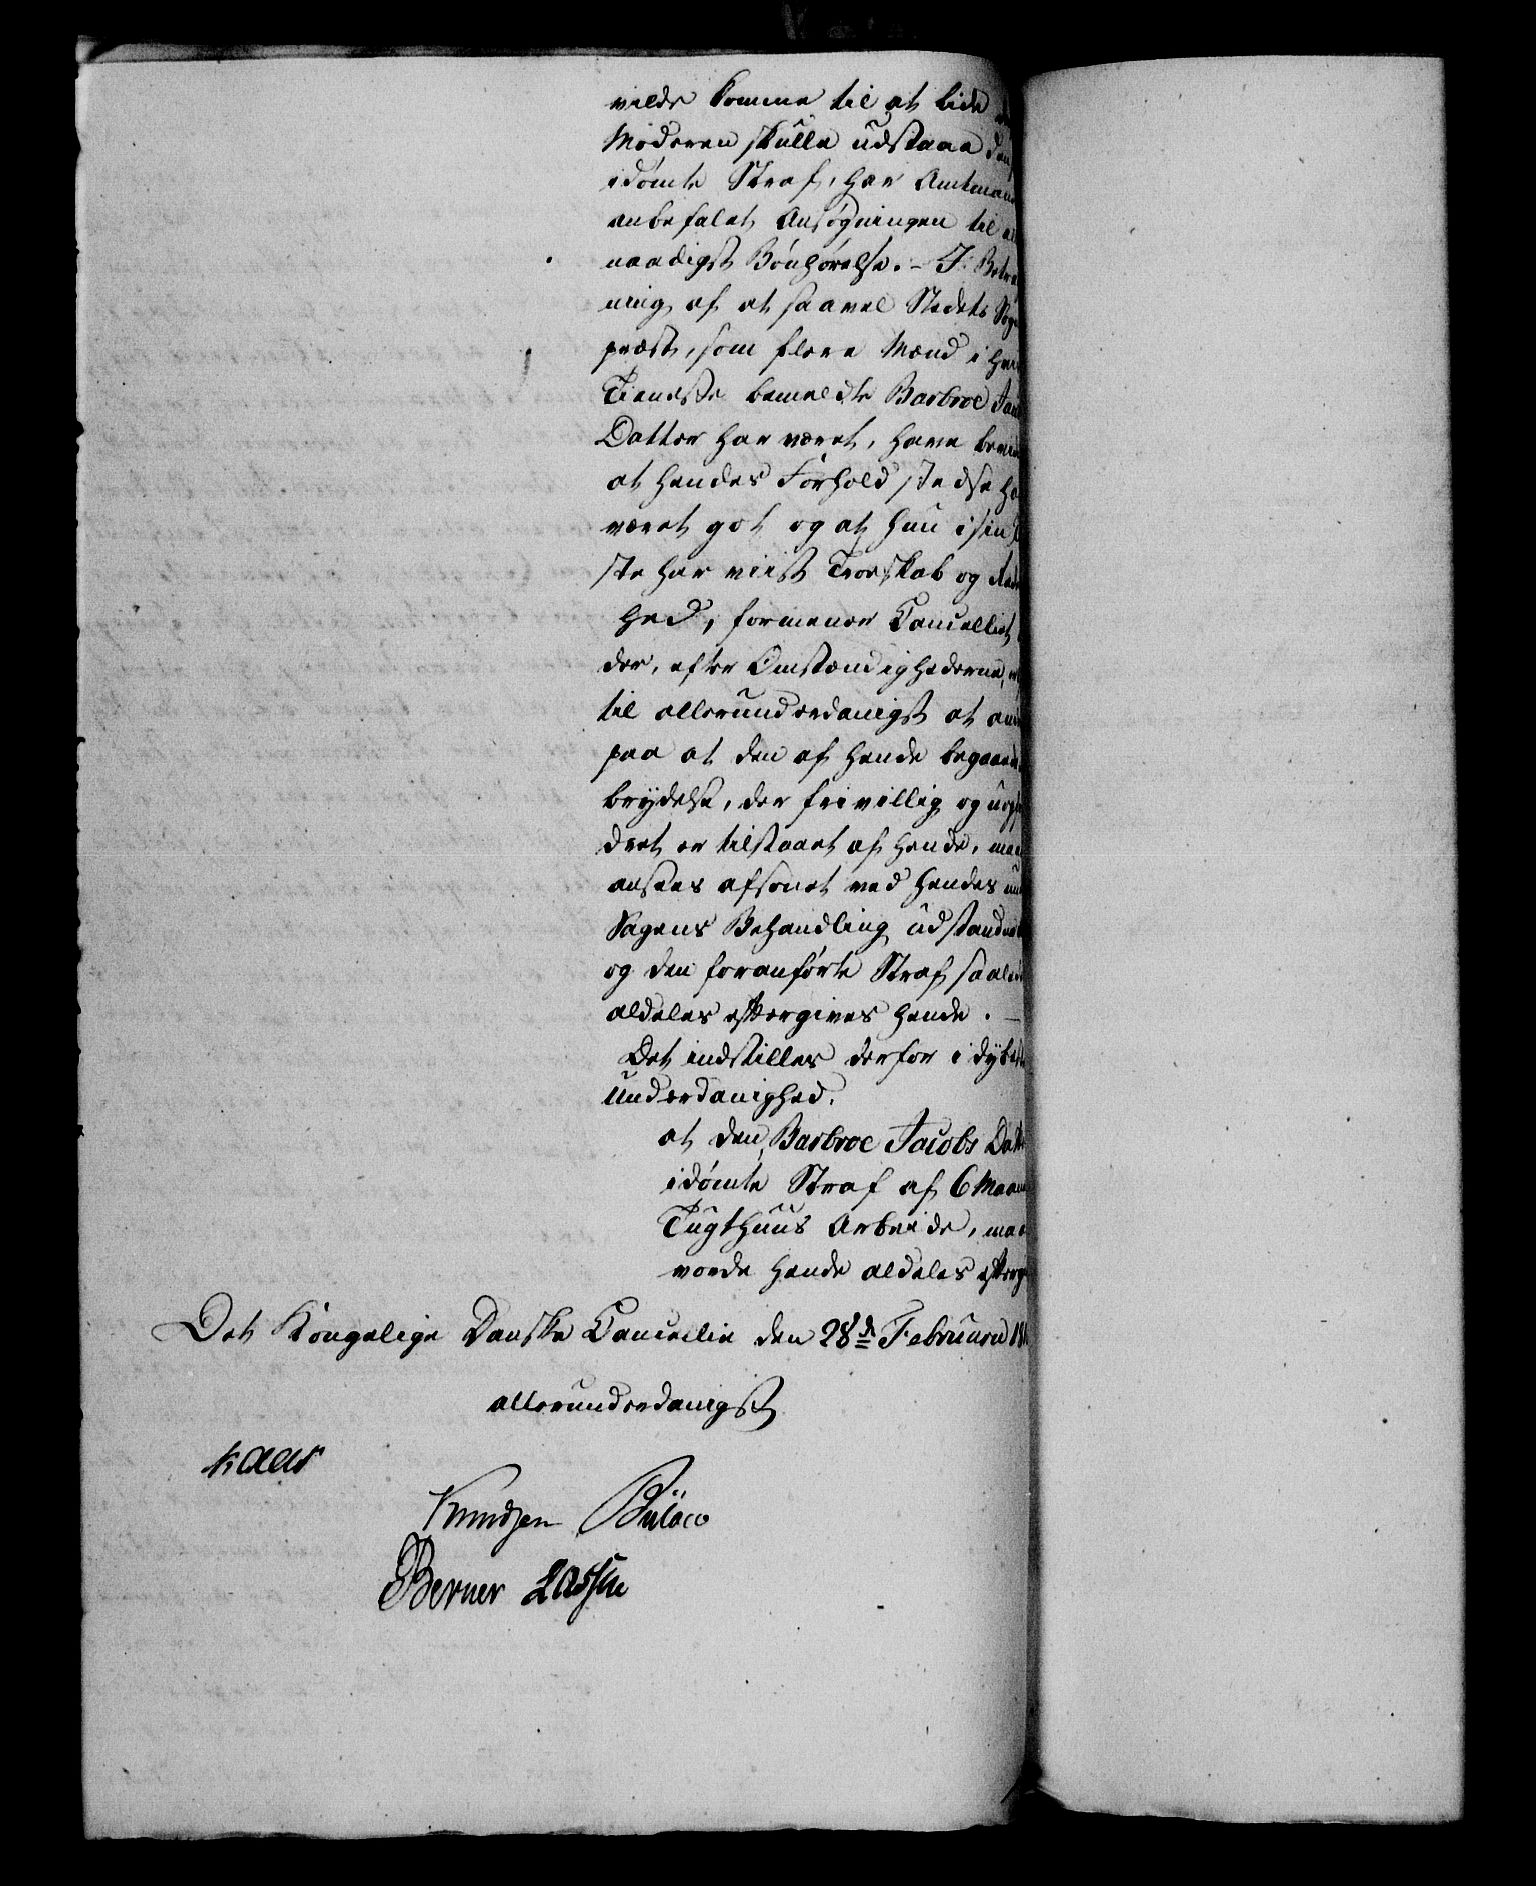 vilde komme til at lide
Moderen skulle udstaae den
idømte Straf, har Amtmand
anbefalet Ansøgningen til al
naadigst Bønhørelse. – I Betra
ning af at saavel Stedets Sog
præst, som flere Mænd i hvi
Tieneste bemeldte Barbroe Jac
Datter har været, have bevi
at hendes Forhold stedse ha
været got og at hun i sin
ste har viist Troeskab og Red
hed, formener Cancelliet
der, efter Omstændighederne,
til allerunderdanigst at an
paa at den af hende begaaed
brydelse, der frivillig og uopf
dret er tilstaaet af hende, maa
ansees afsonet ved hendes un
Sagens Behandling udstandne
og den foranførte Straf saale
aldeles eftergives hende. –
Det indstilles derfor i dybeste
Underdanighed.
at den, Barbroe Jacobs Datt
idømte Straf af 6 Maan
Tugthuus Arbeide, maa
vorde hende aldeles efterg
Det Kongelige Danske Cancellie den 28de Februarii 18
allerunderdanigst
Kaas
Knudsen Bülow
Berner Lassen